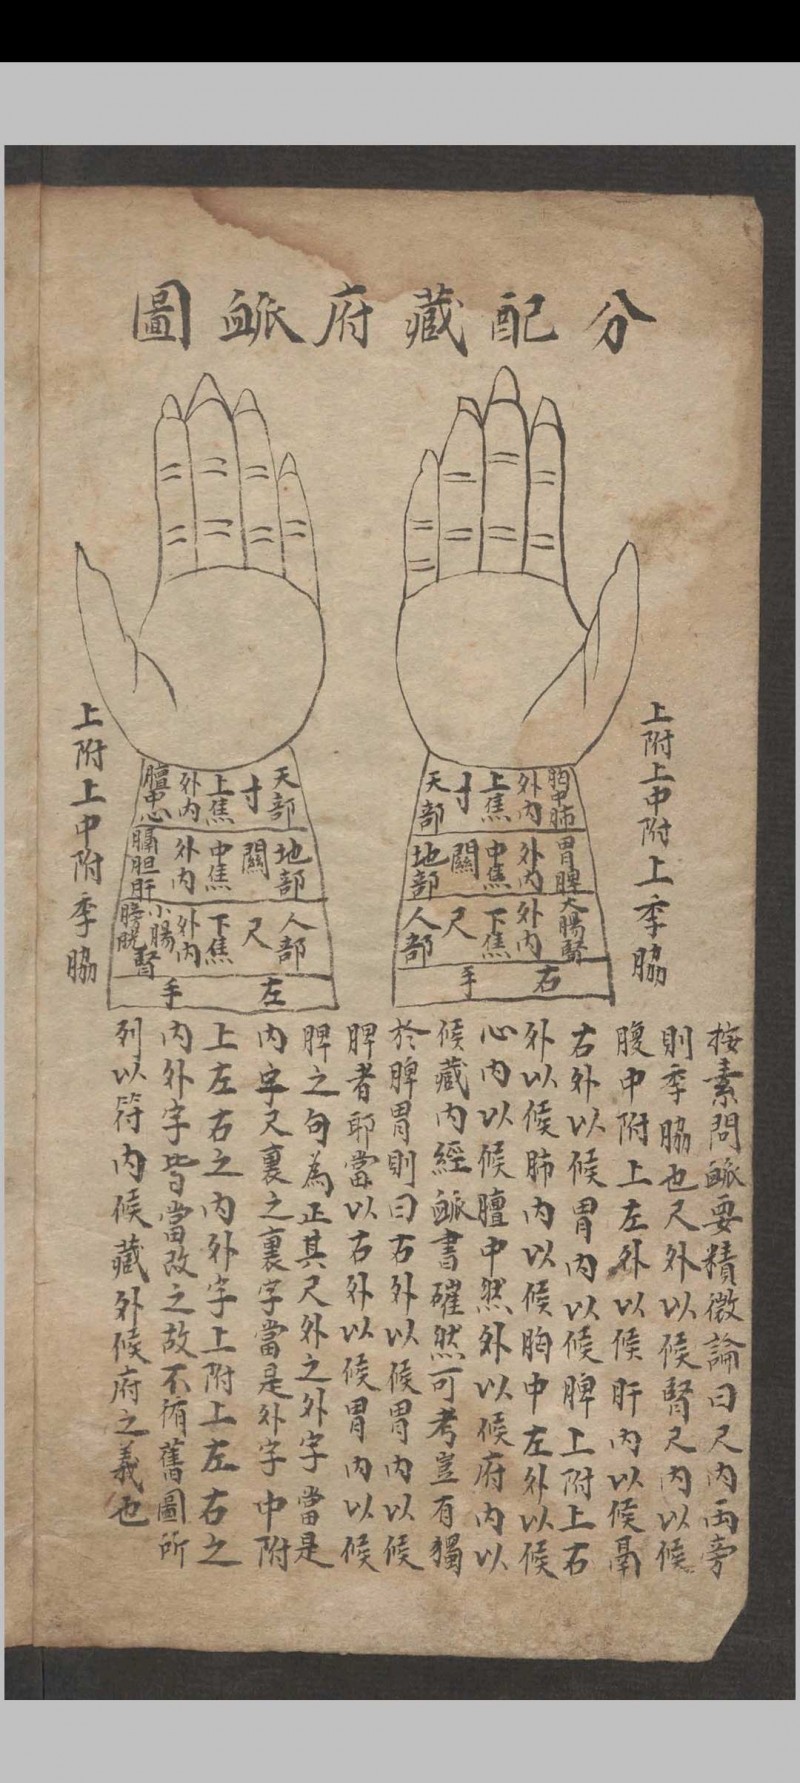 分配藏府脈圖
上附上中附上季脇
胸中肺
外内
上焦
寸
天部
胃脾
外内
中焦
關
地部
大腸腎
外内
下焦
尺
人部
右手
天部
寸
上焦
外内
膻中心
地部
關
中焦
外内
膈胆肝
人部
尺
下焦
外内
小腸腎
膀胱
左手
上附上中附季脇
按素問脈要精微論曰尺内両旁
則季脇也尺外以候腎尺内以候
腹中附上左外以候肝内以候鬲
右外以候胃内以候脾上附上右
外以候肺内以候胸中左外以候
心内以候膻中然外以候府内以
候藏内經脈書確然可考豈有獨
於脾胃則曰右外以候胃内以候
脾者耶當以右外以候胃内以候
脾之句為正其尺外之外字當是
内字尺裏之裏字當是外字中附
上左右之内外字上附上左右之
内外字皆當改之故不循舊圖所
列以符内候藏外候府之義也